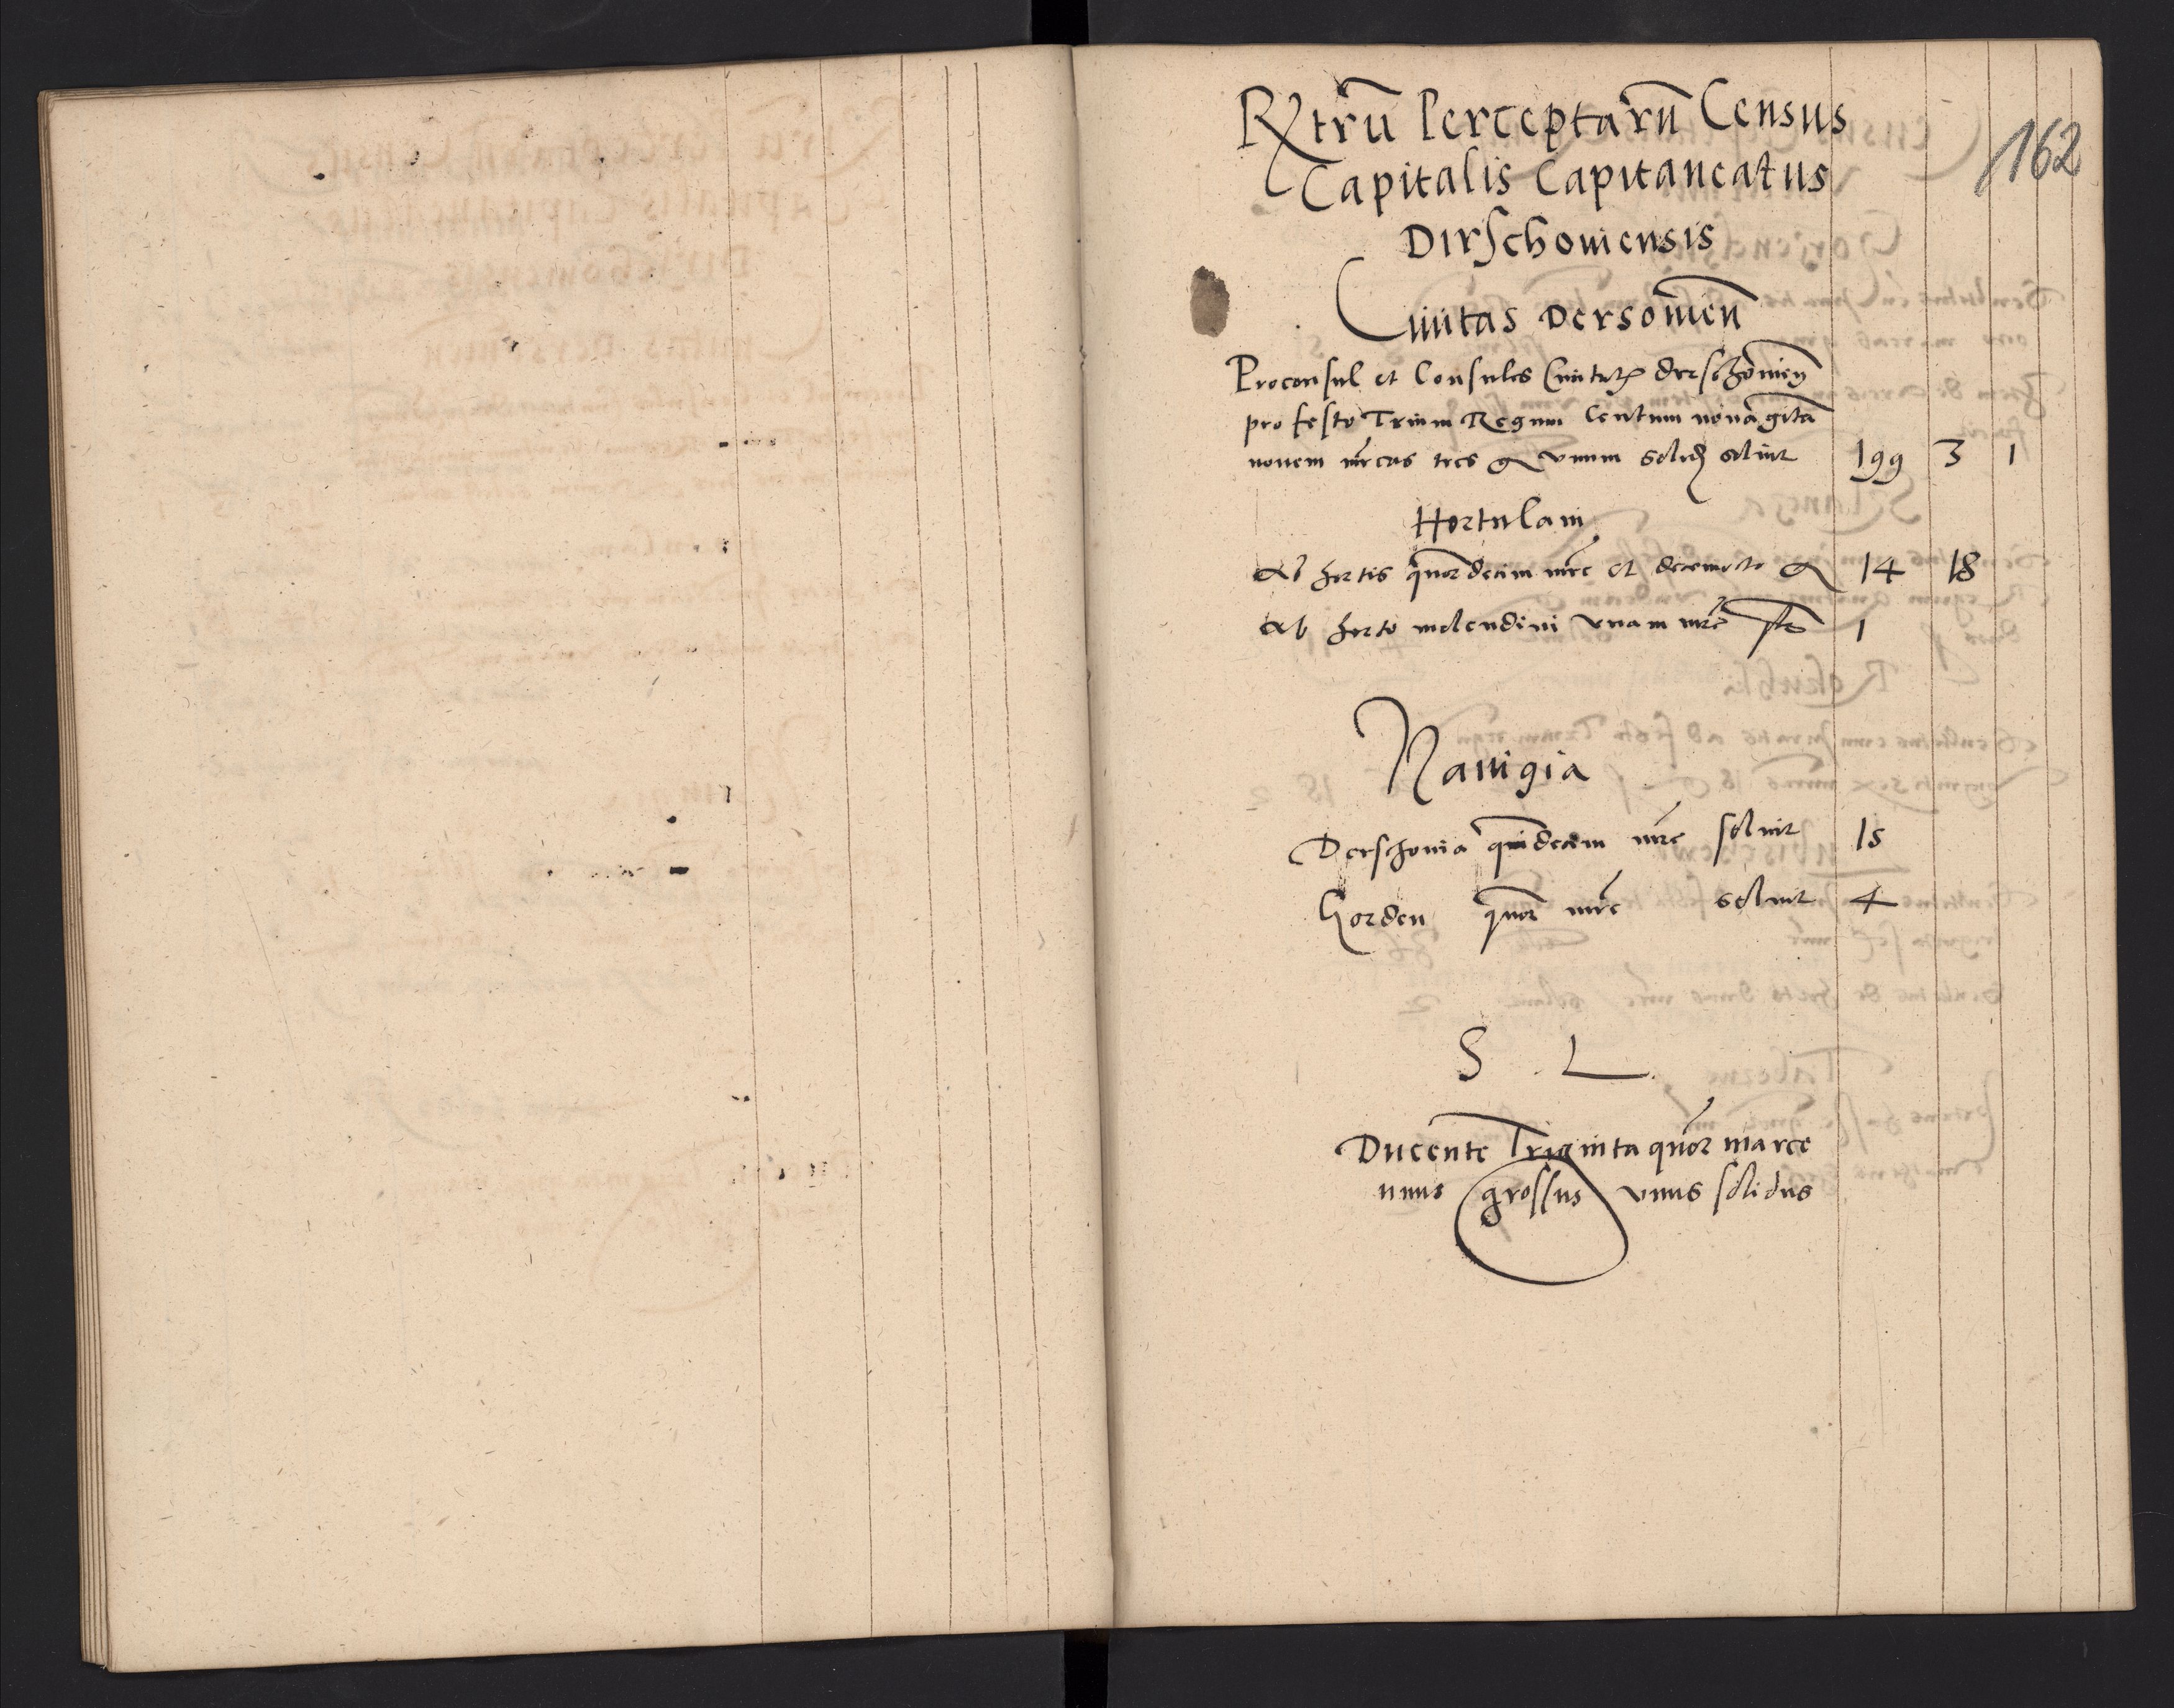 162
Rx̃trũ Perceptarũ Census
Capitalis Capitaneatus
Dirschouiensis
Ciuitas Dersouieñ
Proconsul et Consules Ciuitatꝭ derschouieñ
pro festo Trium Regum Centum nonagĩta
nouem mrcas tres gͣ vnum solidͣ soluit 199 3 1
Hortulani
Ab hortis quor decim mrc et decemocto gͣ 14 18
Ab horto molendini vnam mrc 1
Nauigia
Derschouia quindecim mrc soluit 15
Gorden quor mrc soluit 4
S . L .
Ducente Triginta quor marce
unus grossus vnus solidus